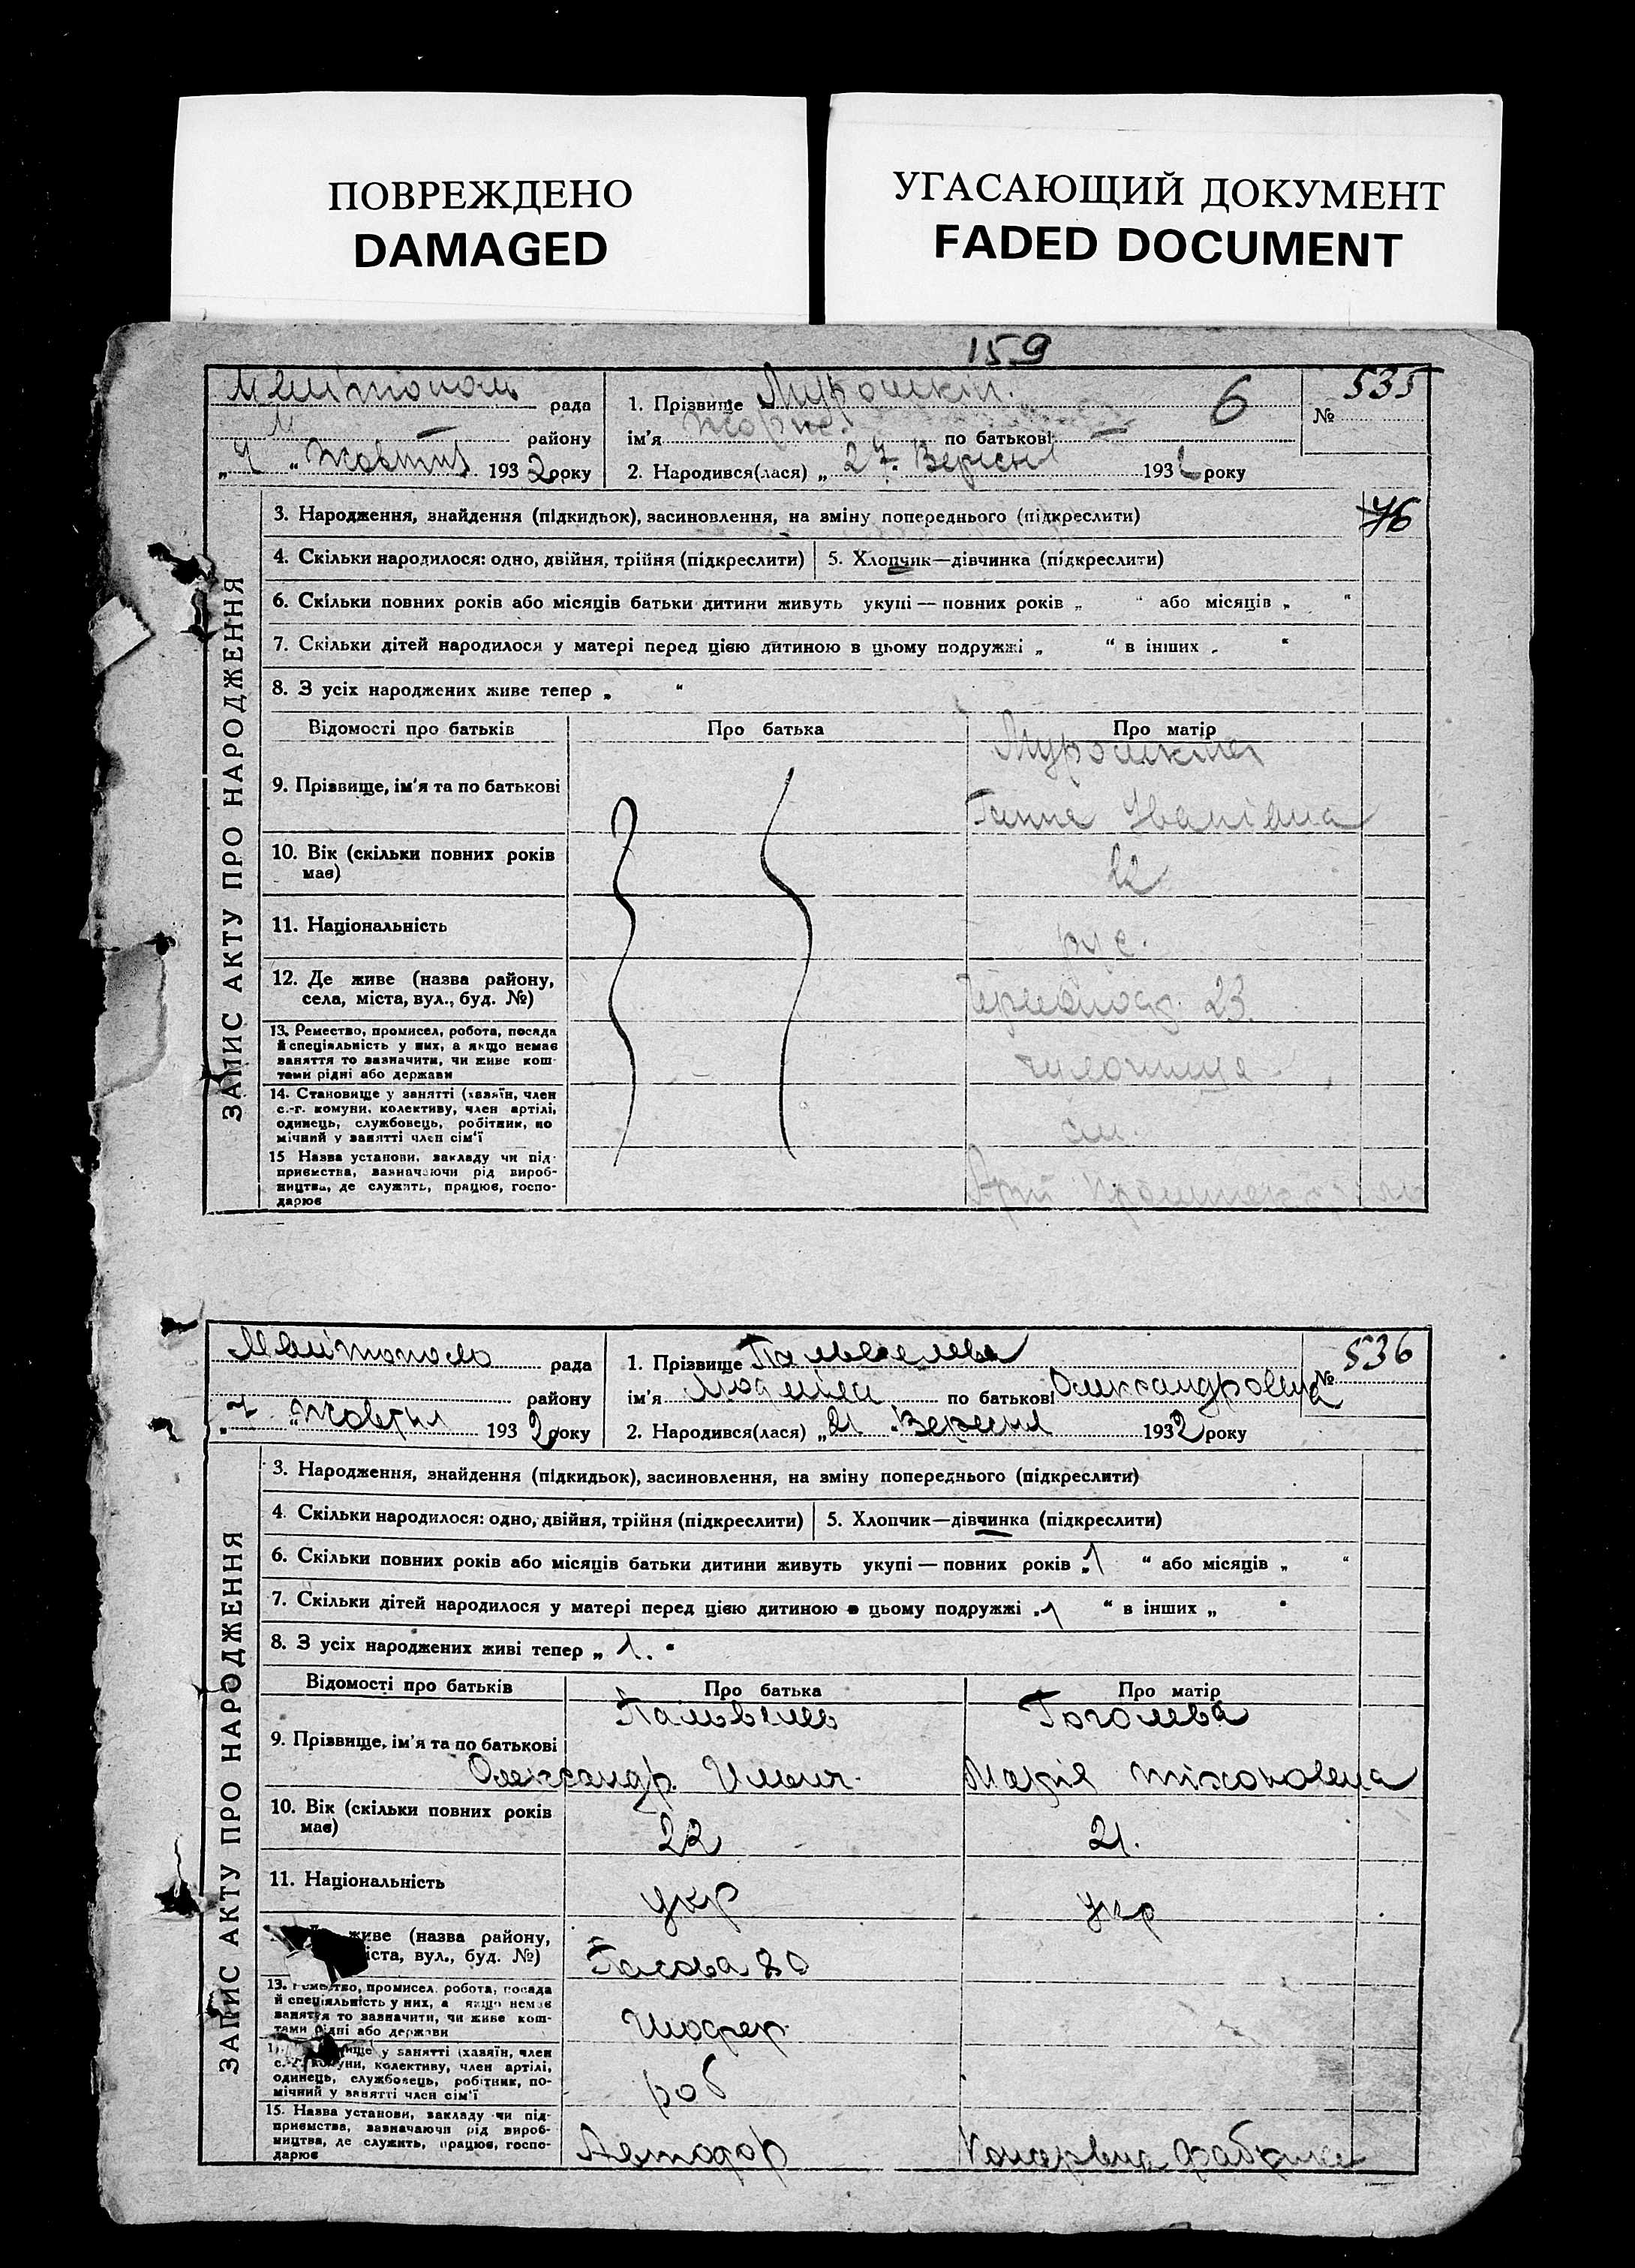 ПОВРЕЖДЕНО
DAMAGED
УГАСАЮЩИЙ ДОКУМЕНТ
FADED DOCUMENT
159
Мелітополь рада
М району
193 2 року
1. Прізвище Мурошкін. 6
ім'я по батькові —
2. Народився(лася) „ 27. Вересня 193 2 року
№ 535
ЗАПИС АКТУ ПРО НАРОДЖЕННЯ
3. Народження, знайдення (підкидьок), засиновлення, на зміну попереднього (підкреслити)
76
4. Скільки народилося: одно, двійня, трійня (підкреслити) 5. Хлопчик—дівчинка (підкреслити)
6. Скільки повних років або місяців батьки дитини живуть укупі — повних років „ “ або місяців „ “
7. Скільки дітей народилося у матері перед цією дитиною в цьому подружжі „ “ в інших „ “
8. З усіх народжених живе тепер „ “
Відомості про батьків Про батька Про матір
9. Прізвище, ім'я та по батькові Мурошкіна
Ганна Іванівна
10. Вік (скільки повних років має) 22
11. Національність рус.
12. Де живе (назва району, села, міста, вул., буд. №) 23
13. Ремество, промисел, робота, посада й спеціяльність у них, а якщо немає заняття то зазначити, чи живе коштами рідні або держави
14. Становище у занятті (хазяїн, член с.-г. комуни, колективу, член артілі, одинець, службовець, робітник, помічний у занятті член сім'ї
15 Назва установи, закладу чи підприємства, зазначаючи рід виробництва, де служить, працює, господарює
Мелітополь рада
району
„ 7 “ Жовтня 193 2 року
1. Прізвище
ім'я по батькові Олександровна
2. Народився(лася) „ 21 Вересня 193 2 року
№ 536
ЗАПИС АКТУ ПРО НАРОДЖЕННЯ
3. Народження, знайдення (підкидьок), засиновлення, на зміну попереднього (підкреслити)
4. Скільки народилося: одно, двійня, трійня (підкреслити) 5. Хлопчик—дівчинка (підкреслити)
6. Скільки повних років або місяців батьки дитини живуть укупі — повних років „ 1 “ або місяців „ “
7. Скільки дітей народилося у матері перед цією дитиною в цьому подружжі „ 1 “ в інших „ “
8. З усіх народжених живі тепер „ 1. “
Відомості про батьків Про батька Про матір
9. Прізвище, ім'я та по батькові Гоголева
Олександр Ильич. Марія Тіхоновна
10. Вік (скільки повних років має) 22 21.
11. Національність укр укр
живе (назва району, міста, вул., буд. №)
13. Ремество, промисел, робота, посада й спеціяльність у них, а якщо немає заняття то зазначити, чи живе коштами рідні або держави Шофер
у занятті (хазяїн, член с.-г. комуни, колективу, член артілі, одинець, службовець, робітник, помічний у занятті член сім'ї роб
15. Назва установи, закладу чи підприємства, зазначаючи рід виробництва, де служить, працює, господарює Автодор фабрика